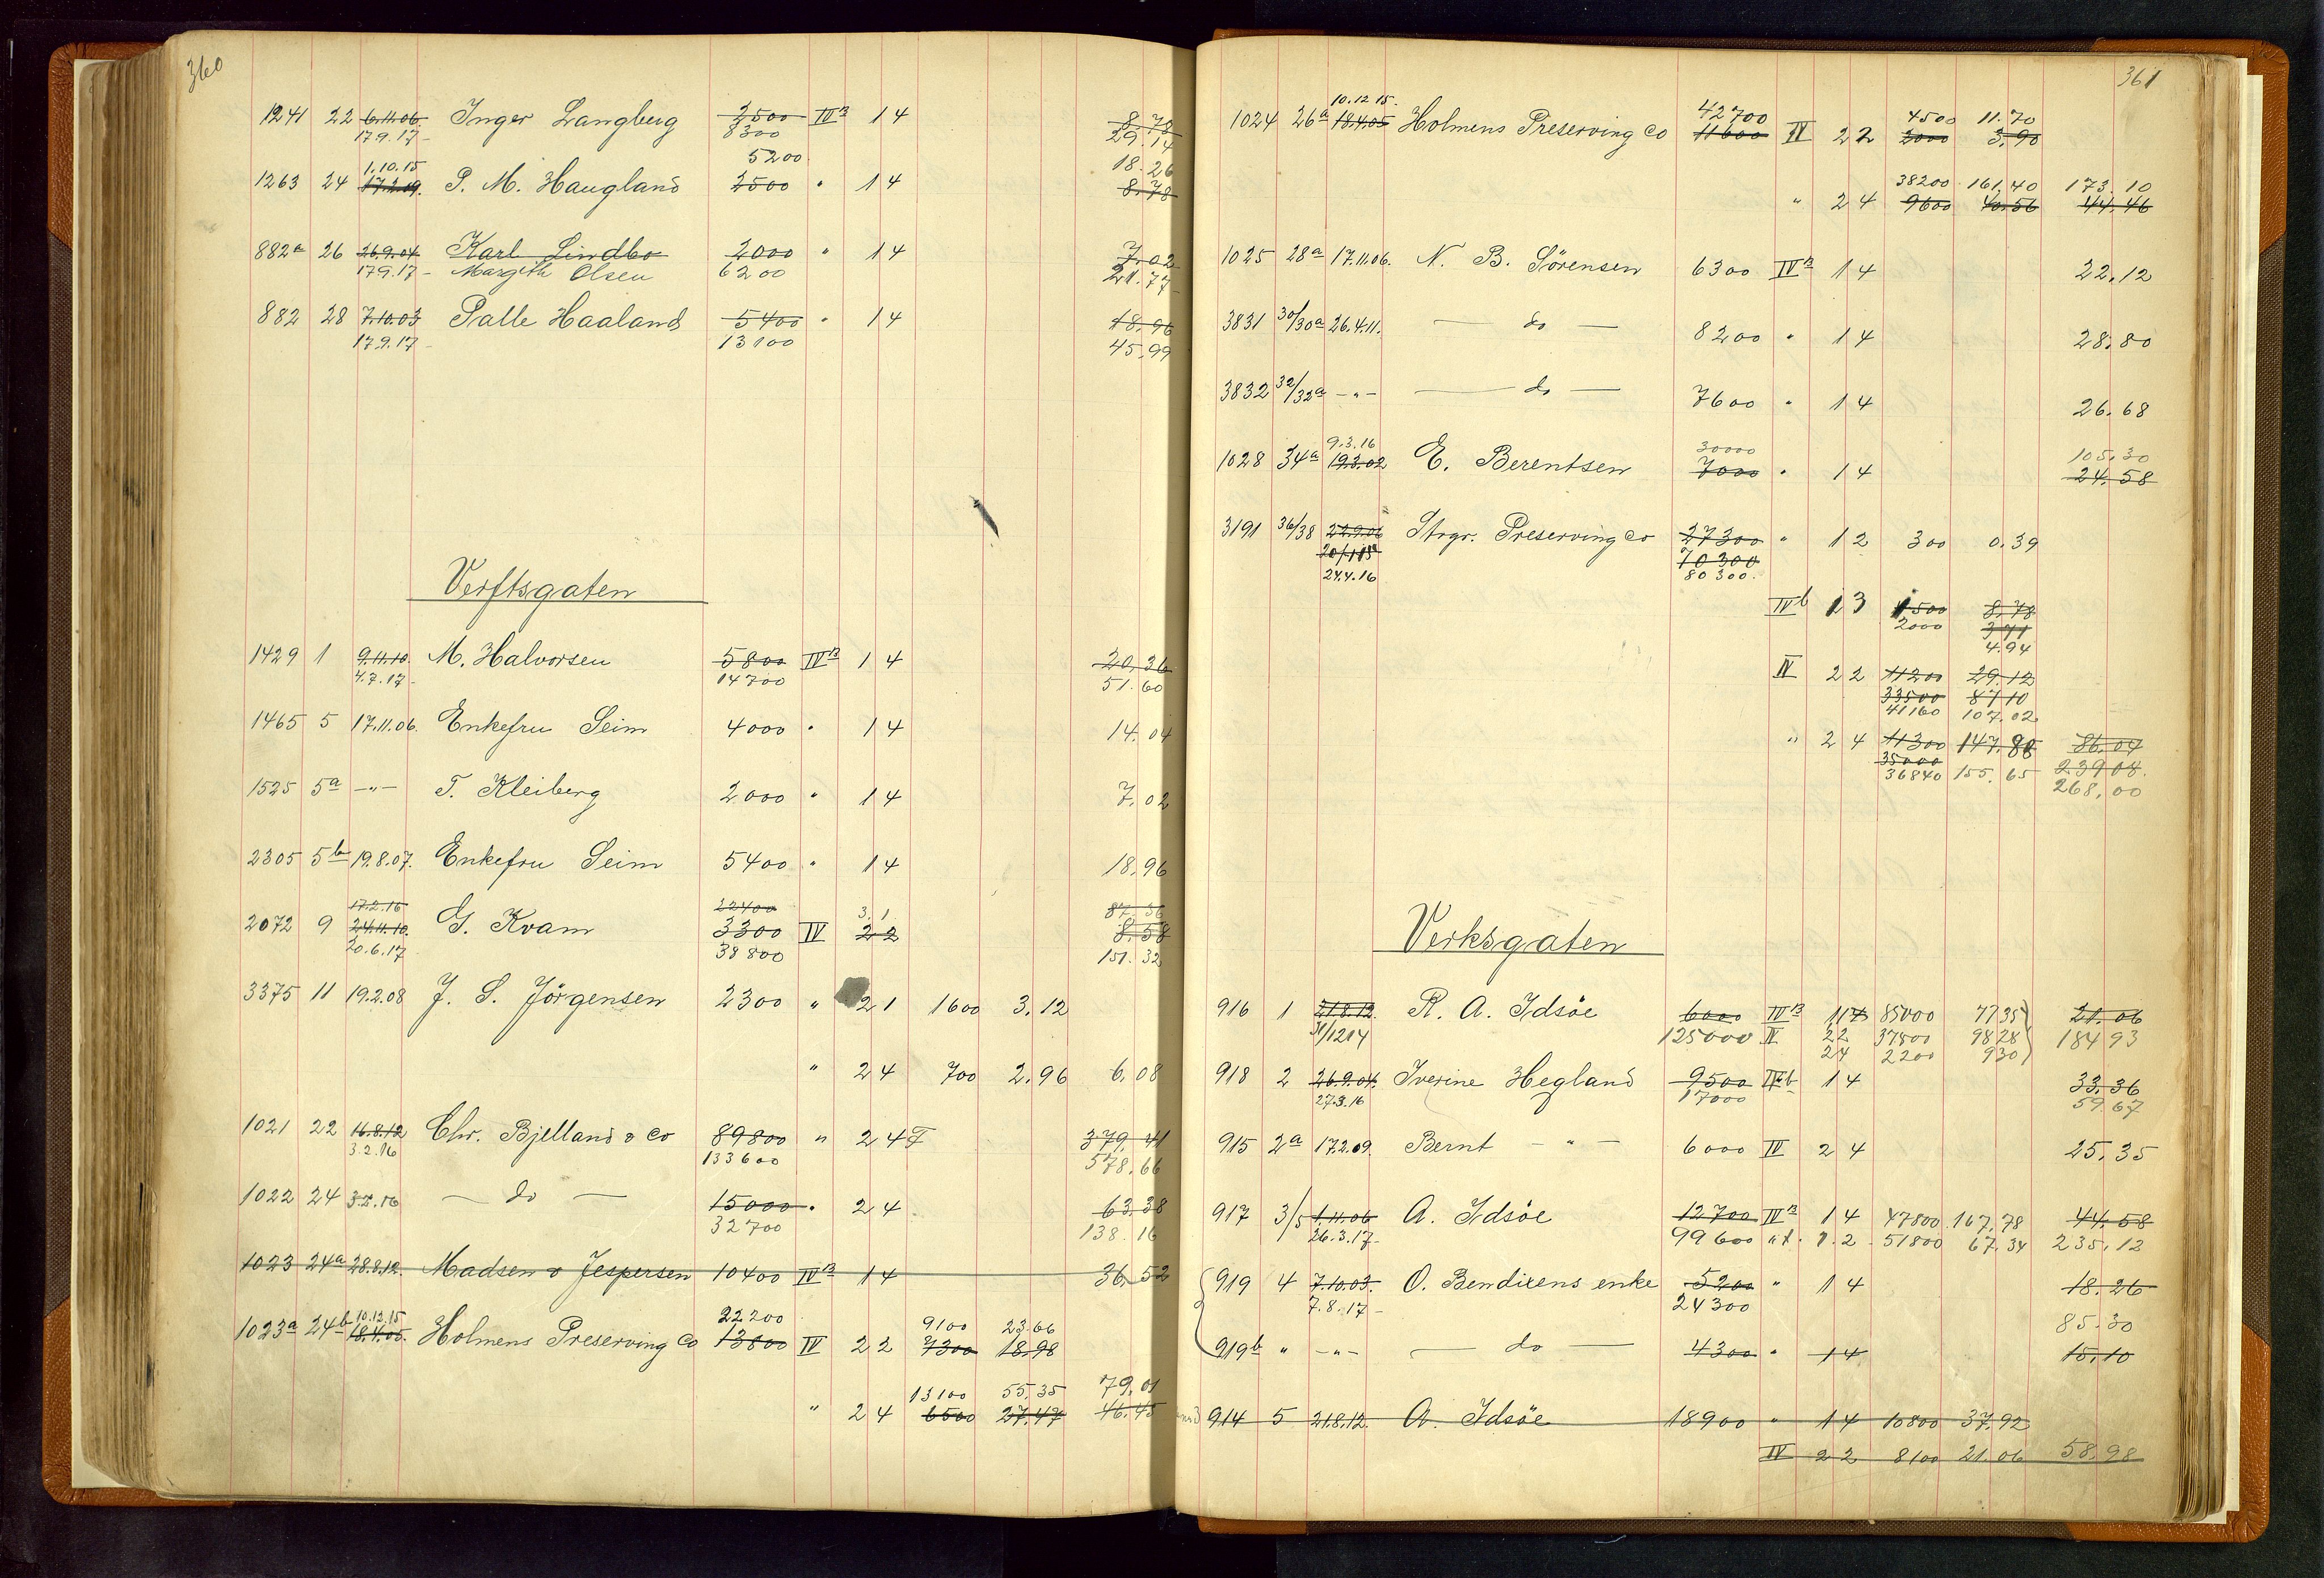 360
1241 22 6.11.06. Inger Langberg 2500 IVB 14 8.78
17.9.17- 8300 29.14
1.10.15 5200 18.26
1263 24 17.2.09. P. M. Haugland 2500 " 14 8.78
882a 26 26.9.04 Karl Lindbo 2000 " 14 7.02
17.9.17- Margith Olsen 6200 21.77
882 28 7.10.03 Palle Haaland 5400 " 14 18.96
17.9.17- 13100 45.99
Verftsgaten
1429 1 9.11.10. M. Halvorsen 5800 IVB 14 20.36
4.7.17- 14700 51.60
1465 5 17.11.06. Enkefru Seim 4000 " 14 14.04
1525 5a -"- T. Kleiberg 2000 " 14 7.02
2305 5b 19.8.07. Enkefru Seim 5400 " 14 18.96
17.2.16 22400 3.1 87.36
2072 9 24.11.10. G. Kvam 3300 IV 22 8.58
20.6.17 38800 151.32
3375 11 19.2.08 J. S. Jörgensen 2300 " 21 1600 3.12
" 24 700 2.96 6.08
1021 22 16.8.12 Chr. Bjelland & Co 89800 " 24 F 379.41
3.2.16 133600 578.66
1022 24 3.2.16 — do — 15000 " 24 63.38
32700 138.16
1023 24a 28.8.12. Madsen & Jespersen 10400 IVB 14 36.52
10.12.15 22200 9100 23.66
1023a 24b 18.4.05. Holmens Preserving Co 13800 IV 22 7300 18.98
13100 55.35 79.01
" 24 6500 27.47 46.45
361
10.12 15. 42700 4500 11.70
1024 26a 18.4.05 Holmens Preserving Co 11600 IV 22 3000 3.90
38200 161.40 173.10
" 24 9600 40.56 44.46
1025 28a 17.11.06. N. B. Sörensen 6300 IVB 14 22.12
3831 30/30a 26.4.11. — do — 8200 " 14 28.80
3832 32/32a -"- — do — 7600 " 14 26.68
9.3.16 30000 105.30
1028 34a 19.3.02 E. Berentsen 7000 " 14 24.58
3191 36/38 22.9.06 Strgr. Preserving Co 27300 " 12 300 0.39
20/1 15 70300
24.4.16 80300.
IVb 13 1500 8.78
2000 3.71
4.94
IV 22 11200 29.12
33500 87.10
41160 107.02
" 24 11300 147.88 86.04
35000 239.08.
36840 155.65 268.00
Verksgaten
916 1 21.8.12. R. A. Idsöe 6000 IVB 114 85000 7735 21.06
31/12 14 125000 IV 22 37800 9828 184 93
24 2200 930
918 2 26.9.04. Iverine Hegland 9500 IVb 14 33.36
27.3.16 17000 59.67
915 2a 17.2.09. Bernt — " — 6000 IV 24 25.35
917 3/5 1.11.06 A. Idsöe 12700 IVB 14 47800 167.78 44.58
26.3.17- 99600 1.2 51800 67.34 235.12
919 4 7.10.03. O. Bendixens enke 5200 " 14 18.26
7.8.17- 24300 85.30
919b " -"- — do — 4300 " 14 15.10
914 5 21.8.12. A. Idsöe 18900 " 14 10800 37.92
IV 22 8100 21.06 58.98